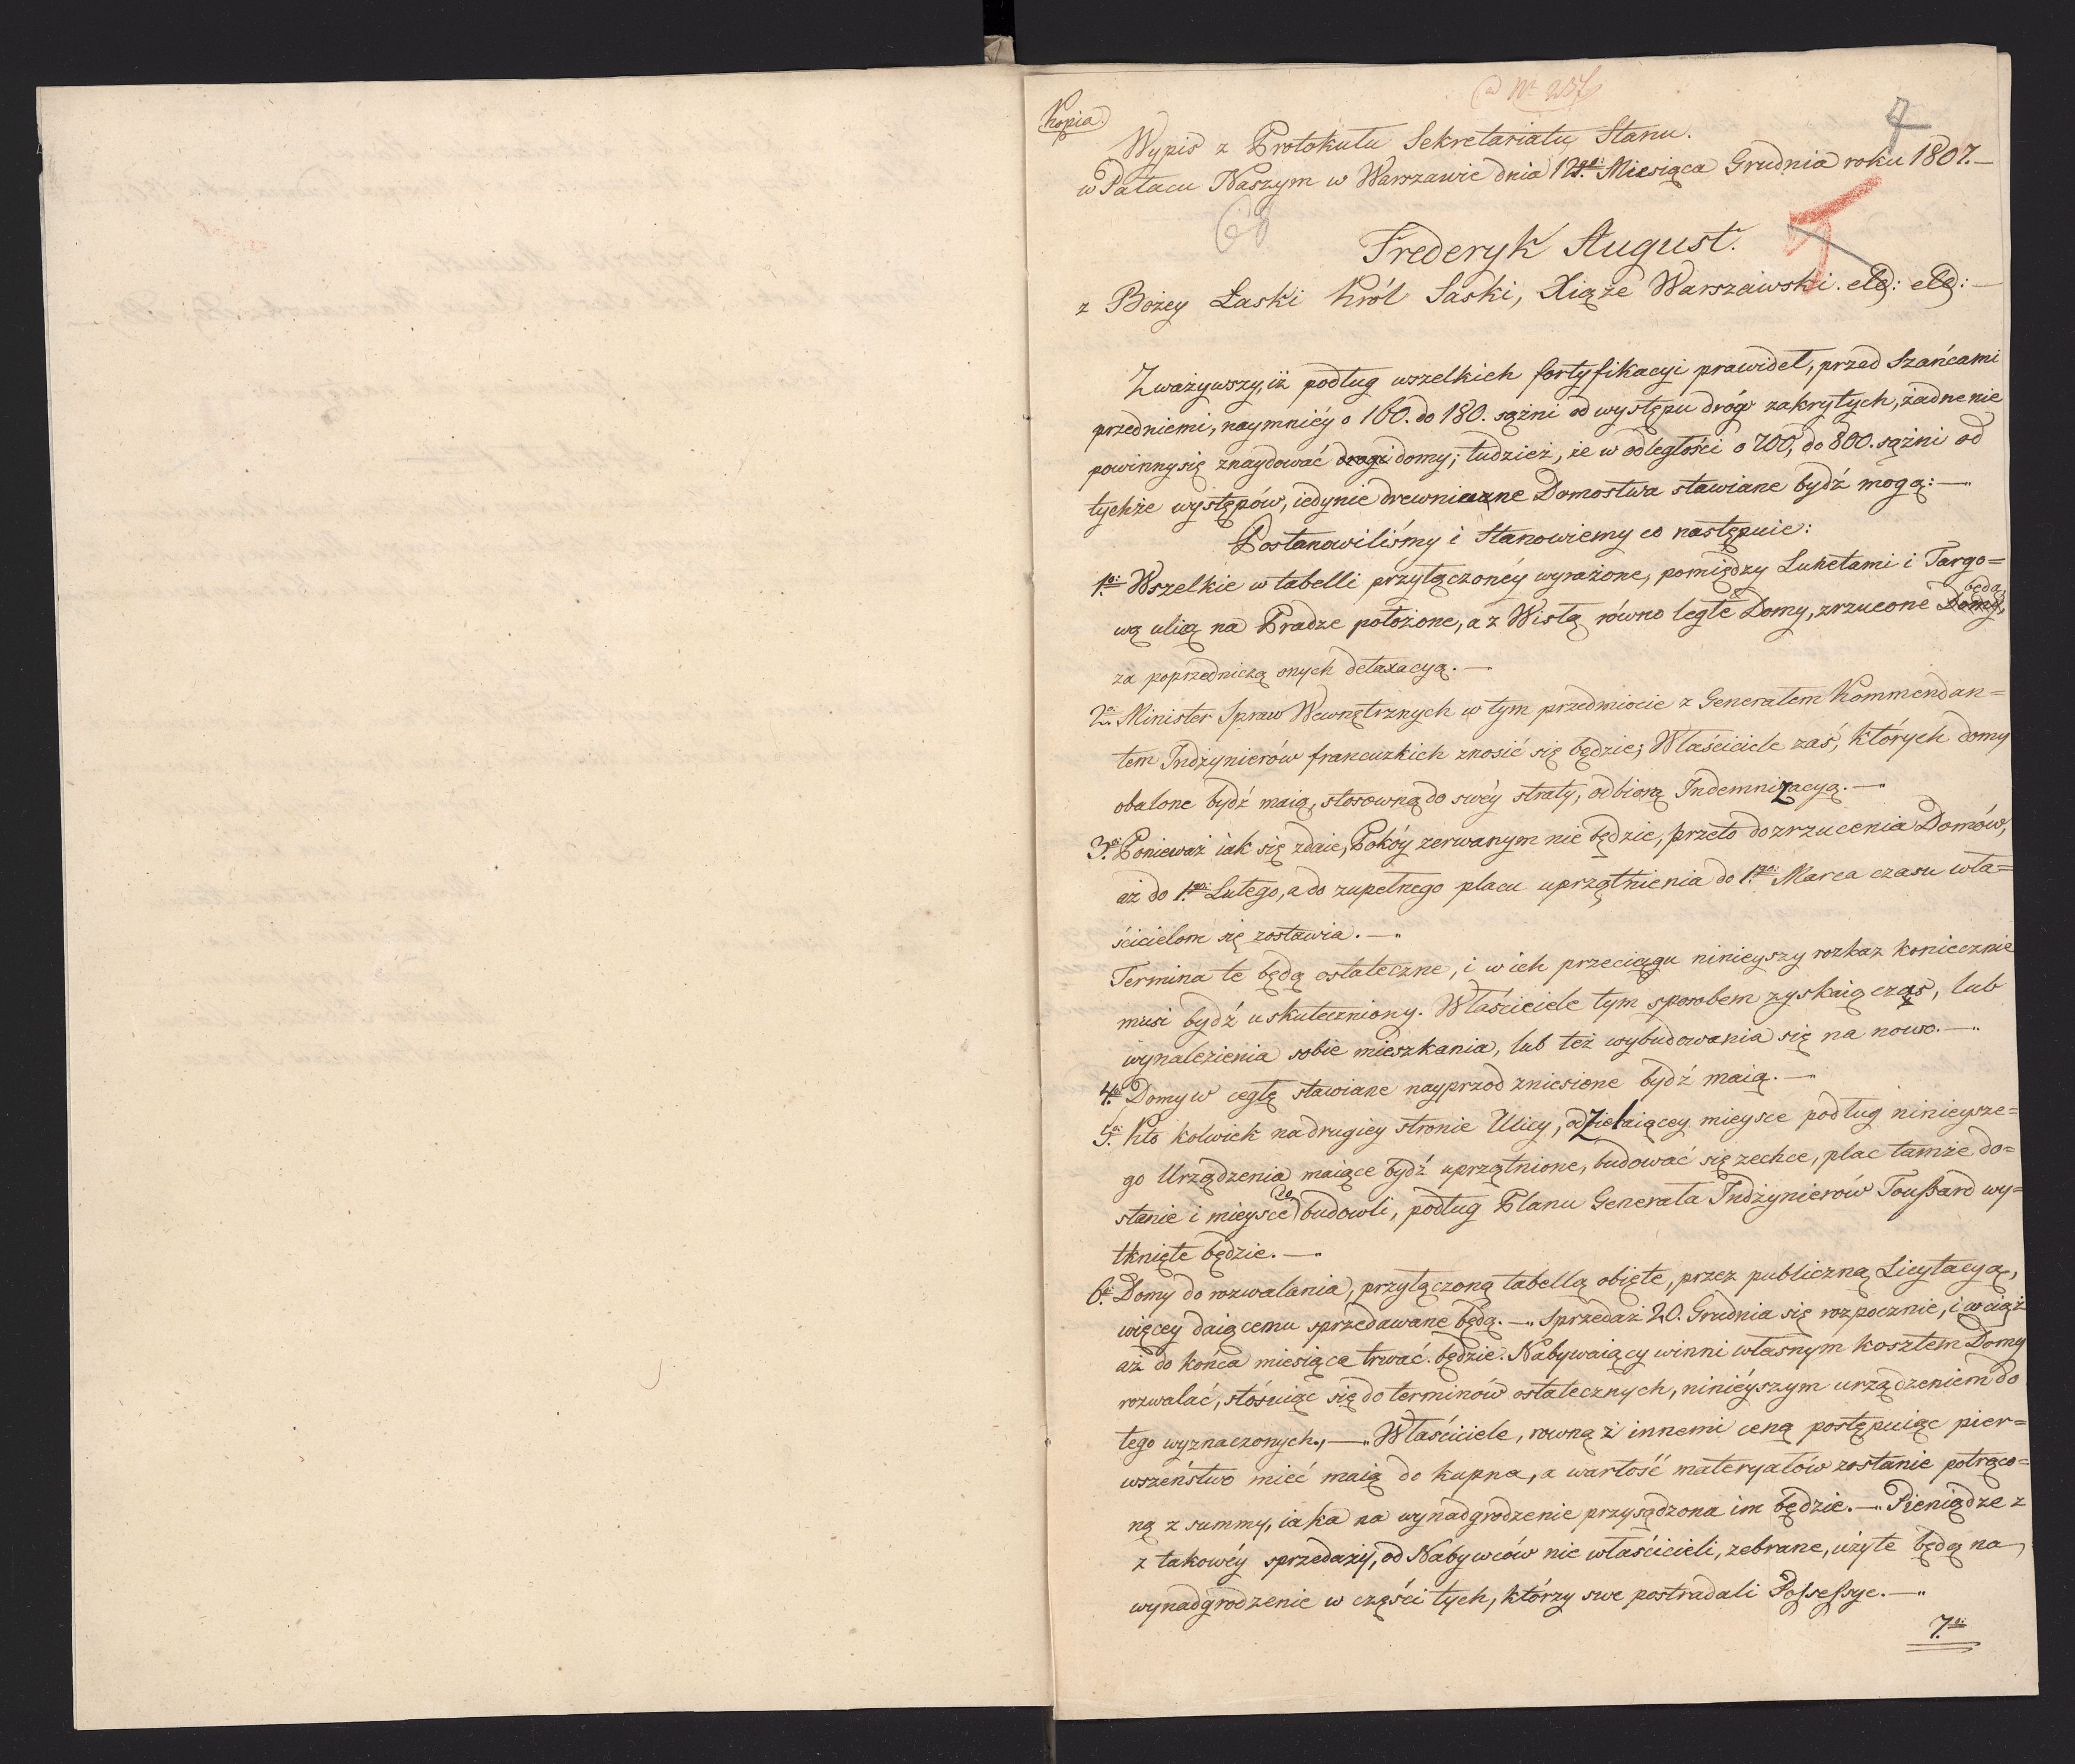 ad Nr 237
Kopia
4
Wypis z Protokułu Sekretariatu Stanu.
w Pałacu Naszym w Warszawie dnia 12go: Miesiąca Grudnia roku 1807.—
Frederyk August.
z Bożey Łaski Król Saski, Xiąże Warszawski. etc: etc:—
Zważywszy, iż podług wszelkich fortyfikacyi prawideł, przed Szańcami
przedniemi, naymniéy o 160. do 180. sążni od występu dróg zakrytych, żadne nie
powinny się znaydować domy; tudzież, że w odległości o 700, do 800. sążni od
tychże występów, iedynie drewniane Domostwa stawiane bydź mogą:—
Postanowiliśmy i Stanowiemy co następuie:
1o: Wszelkie w tabelli przyłączonéy wyrażone, pomiędzy Lunetami i Targo=
wą ulicą na Pradze położone, a z Wisłą równoległe Domy, zrzucone będą,
za poprzedniczą onych detaxacyą.—
2o: Minister Spraw Wewnętrznych w tym przedmiocie z Generałem Kommendan=
tem Indżynierów francuzkich znosić się będzie; Właściciele zaś, których domy
obalone bydź maią, stosowną do swéy straty, odbiorą Indemnizacyą.—
3o: Ponieważ iak się zdaie, Pokóy zerwanym nie będzie, przeto do zrzucenia Domów,
aż do 1go: Lutego, a do zupełnego placu uprzątnienia do 1go: Marca czasu wła=
ścicielom się zostawia.—
Termina te będą ostateczne, i w ich przeciągu ninieyszy rozkaz koniecznie
musi bydź uskuteczniony. Właściciele tym sposobem zyskaią czas, lub
wynalezienia sobie mieszkania, lub też wybudowania się na nowo.—
4o: Domy w cegłę stawiane nayprzod zniesione bydź maią.—
5o: Kto kolwiek na drugiey stronie Ulicy, odzielaiącey mieysce podług ninieysze=
go Urządzenia maiące bydź uprzątnione, budować się zechce, plac tamże do=
stanie i mieysce do budowli, podług Planu Generała Indżynierów Toussard wy=
tknięte będzie.—
6o: Domy do rozwalania, przyłączoną tabellą obięte, przez publiczną Licytacyą,
więcey daiącemu sprzedawane będą.— Sprzedaż 20. Grudnia się rozpocznie, i wciąż
aż do końca miesiąca trwać będzie. Nabywaiący winni własnym kosztem Domy
rozwalać, stósuiąc się do terminów ostatecznych, niniéyszym urządzeniem do
tego wyznaczonych,— Właściciele, rowną z innemi ceną postępuiąc pier=
wszeństwo mieć maią do kupna, a wartość materyałów zostanie potrąco=
ną z summy, iaka na wynadgrodzenie przysądzona im będzie.— Pieniądze z
z takowéy sprzedaży, od Nabywców nie właścicieli, zebrane, użyte będą na
wynadgrodzenie w części tych, którzy swe postradali Possessye.—
7o: